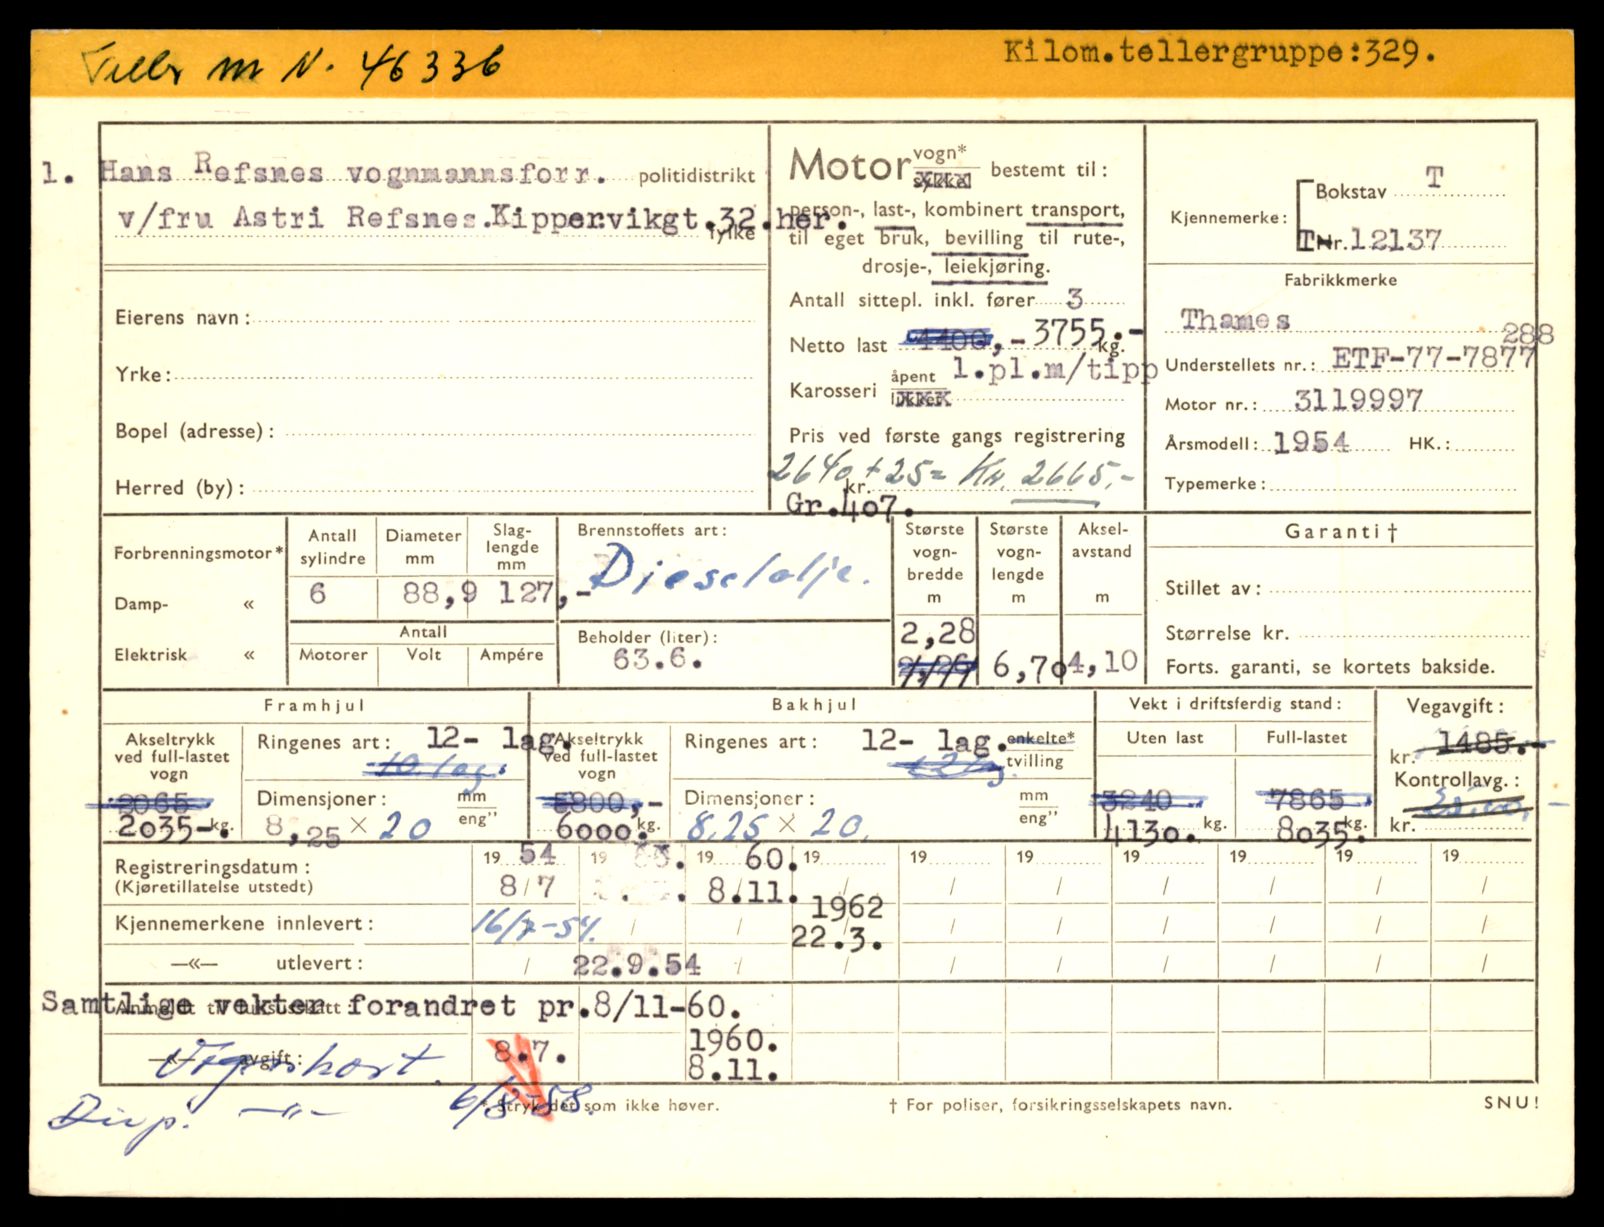 Teller m N. 46336
Kilom.tellergruppe:329.
1. Hans Refsnes vognmannsforr. politidistrikt
v/fru Astri Refsnes.Kippervikgt.32.her.
fylke
Eierens navn:
Yrke:
Bopel (adresse):
Herred (by):
Motor vogn* bestemt til:
person-, last-, kombinert transport,
til eget bruk, bevilling til rute-,
drosje-, leiekjøring.
Antall sittepl. inkl. fører 3
Netto last 4400,- 3755.- kg.
Karosseri åpent 1.pl.m/tipp
lukket
Pris ved første gangs registrering
2640 + 25 = Kr. 2665,-
kr.
Gr.407.
Kjennemerke: Bokstav T
TNr. 12137
Fabrikkmerke
Thames
288
Understellets nr.: ETF-77-7877
Motor nr.: 3119997
Årsmodell: 1954 HK.:
Typemerke:
Forbrenningsmotor*
Damp- «
Elektrisk «
Antall sylindre
6
Diameter mm
88,9
Slaglengde mm
127,-
Antall
Motorer Volt Ampére
Brennstoffets art:
Dieselolje.
Beholder (liter):
63.6.
Største vogn-bredde m
2,28
Største vogn-lengde m
6,70
Aksel-avstand m
4,10
Garanti †
Stillet av:
Størrelse kr.
Forts. garanti, se kortets bakside.
Framhjul
Akseltrykk ved full-lastet vogn
2065
2035-. kg.
Ringenes art: 12- lag.
10 lag.
Dimensjoner: mm
8,25 × 20 eng"
Bakhjul
Akseltrykk ved full-lastet vogn
5800,-
6000. kg.
Ringenes art: 12- lag. enkelte*
12 lag. tvilling
Dimensjoner: mm
8.25 × 20. eng"
Vekt i driftsferdig stand:
Uten last Full-lastet
3240.- 7865.-
4130. kg. 8035. kg.
Vegavgift:
kr. 1485.-
Kontrollavg.:
kr.
Registreringsdatum: 19 54 19 19 60. 19 19 19 19 19 19 19
(Kjøretillatelse utstedt) 8/7 8/11.
1962
Kjennemerkene innlevert: 16/7-54. 22.3.
—«— utlevert: 22.9.54
Samtlige vekter forandret pr.8/11-60.
Anmeldt til luksusskatt:
—«— avgift: 8.7. 1960.
8.11.
Vognkort.
Dup. —"— 6/8-58.
* Stryk det som ikke høver.
† For poliser, forsikringsselskapets navn.
SNU!